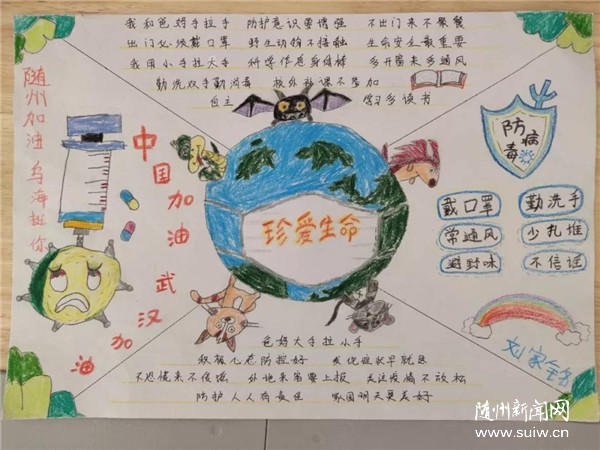 我和爸妈手拉手 防护意识要增强 不出门来不聚餐
出门必须戴口罩 野生动物不接触 生命安全最重要
我用小手拉大手 科学作息身体棒 多开窗来多通风
勤洗双手勤消毒 校外补课不参加
自主 学习多读书
随州加油 乌海挺你
中国加油 武汉加油
防病毒
珍爱生命
戴口罩 勤洗手
常通风 少扎堆
避野味 不信谣
爸妈大手拉小手
叔孩儿老防控好 发现症状早就医
不恐慌来不传谣 外地来客要上报 关注疫情不放松
防护人人有责任 家国明天更美好
刘家
随州新闻网
www.suiw.cn